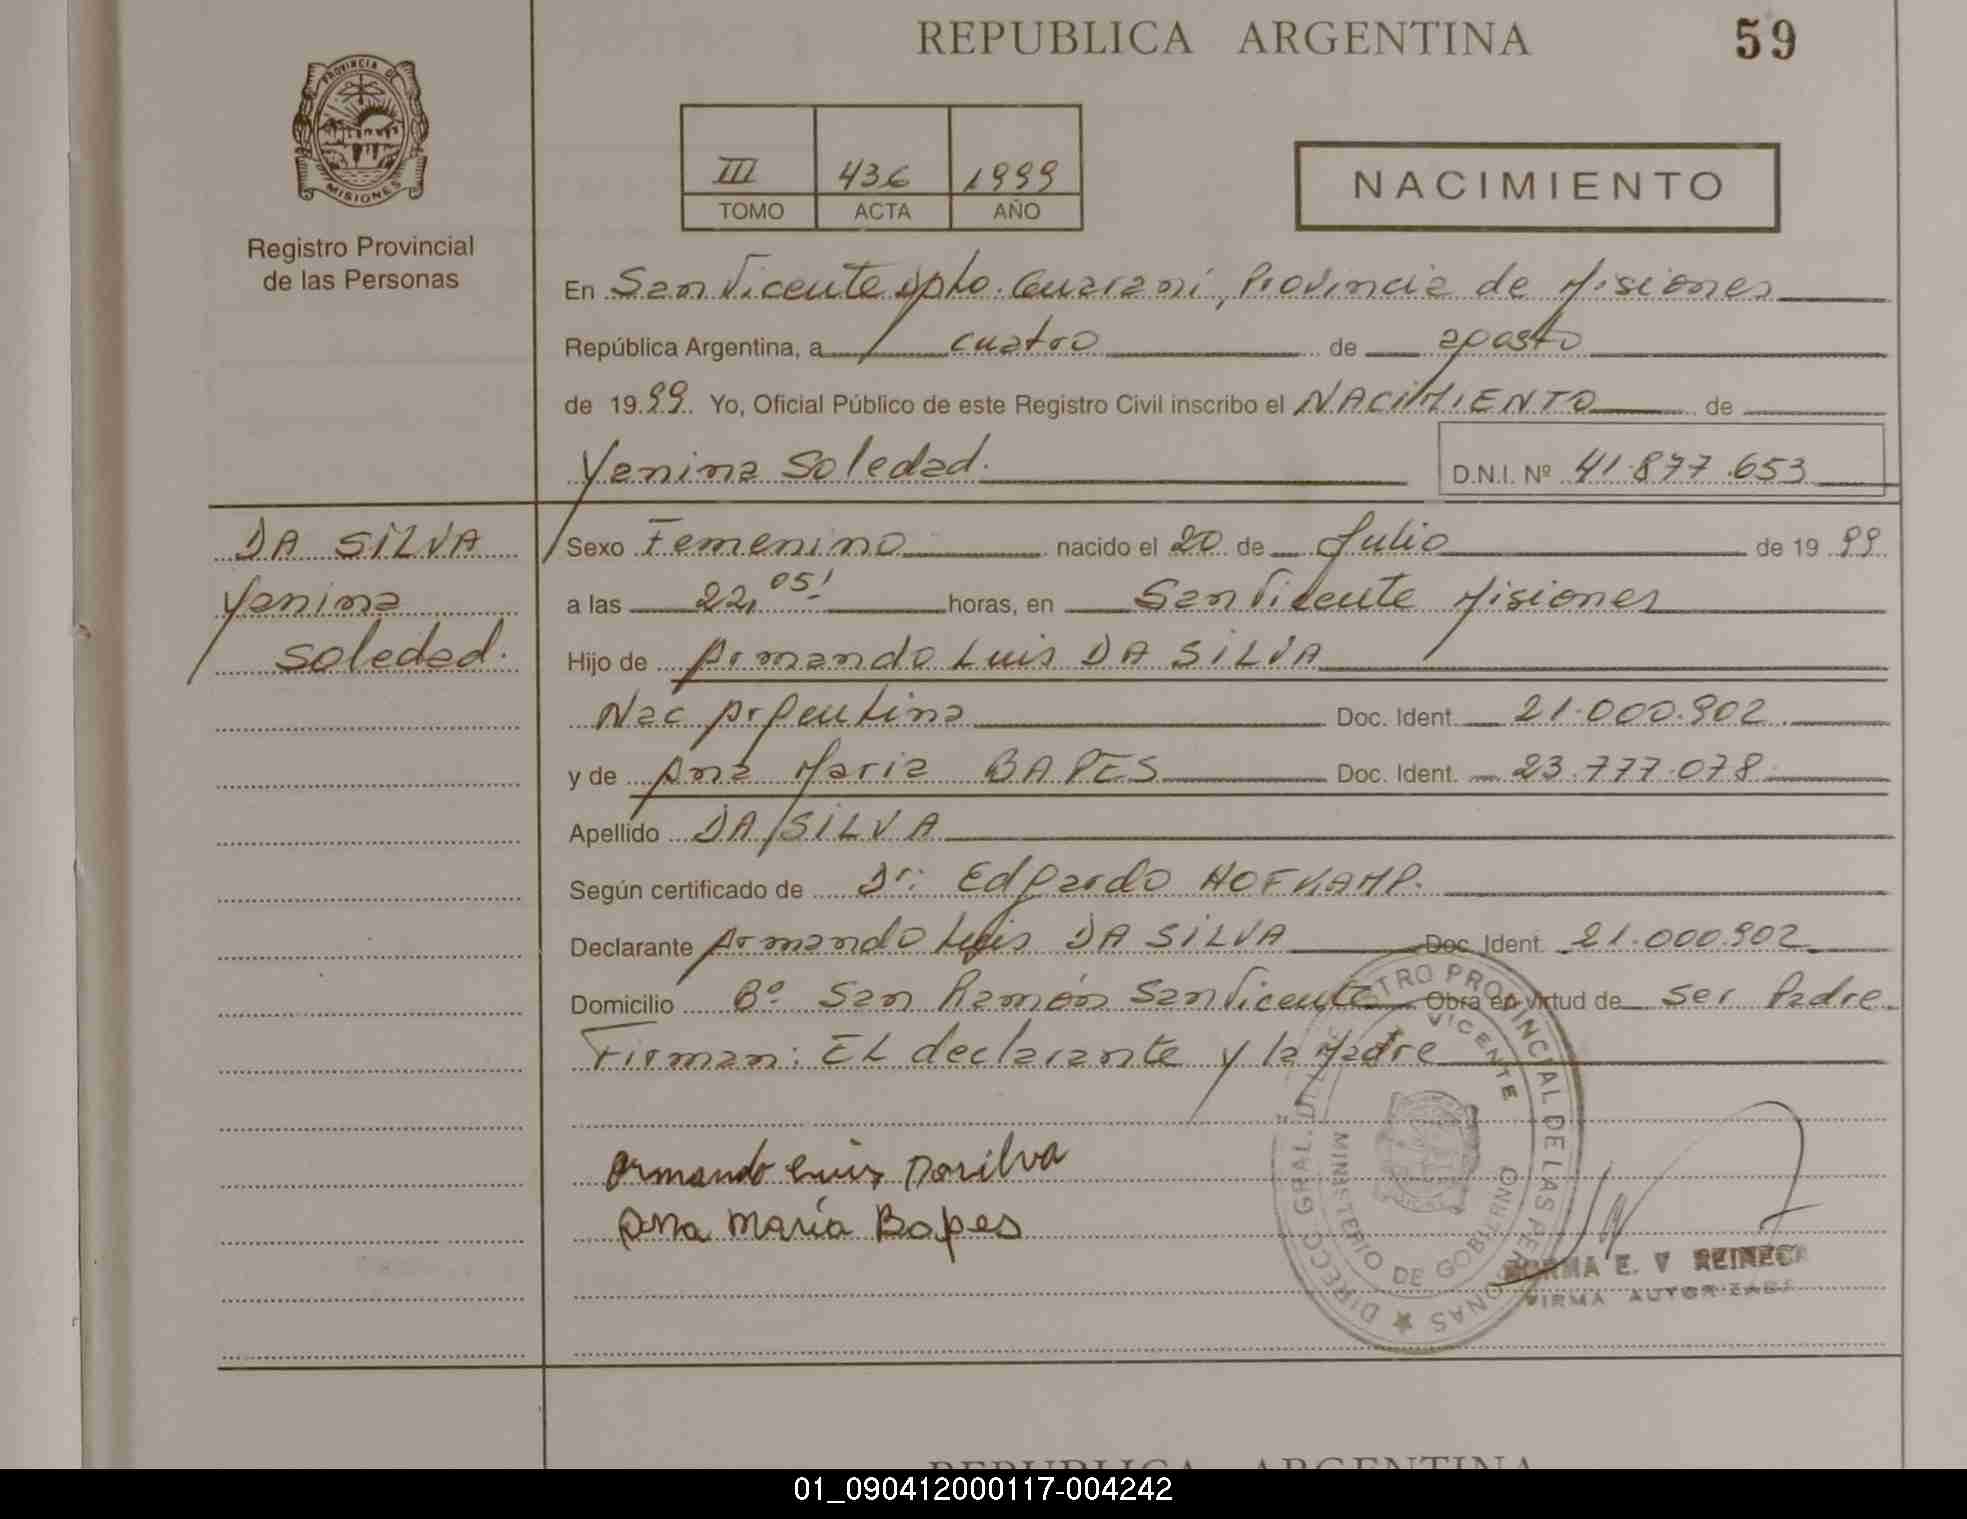 REPUBLICA ARGENTINA
59
PROVINCIA DE
MISIONES
Registro Provincial
de las Personas
III 436 1999
TOMO ACTA AÑO
NACIMIENTO
En San Vicente Dpto. Guaraní, Provincia de Misiones
República Argentina, a cuatro de agosto
de 1999. Yo, Oficial Público de este Registro Civil inscribo el NACIMIENTO de
Yanina Soledad.
D.N.I. Nº 41.877.653
DA SILVA
Yanina
Soledad.
Sexo Femenino nacido el 20 de Julio de 19 99
a las 22,05' horas, en San Vicente Misiones
Hijo de Armando Luis DA SILVA
Nac Argentina Doc. Ident. 21.000.902
y de Ana Maria BAPES Doc. Ident. 23.777.078
Apellido DA SILVA
Según certificado de Dr: Edgardo HOFKAMP.
Declarante Armando Luis DA SILVA Doc. Ident. 21.000.902
Domicilio Bº San Ramón San Vicente Obra en virtud de ser Padre
Firman: El declarante y la Madre
Armando Luis Dasilva
Ana María Bapes
DIRECC. GRAL. DEL REGISTRO PROVINCIAL DE LAS PERSONAS
VICENTE
MINISTERIO DE GOBIERNO
NORMA E. V REINECK
FIRMA AUTORIZADA
REPUBLICA ARGENTINA
01_090412000117-004242